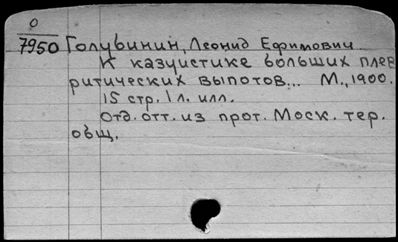 0
7950 Голубинин, Леонид Ефимович.
К казуистике больших плев
ритических выпотов... М., 1900.
15 стр. 1 л. илл.
Отд. отт. из прот. Моск. тер.
общ.